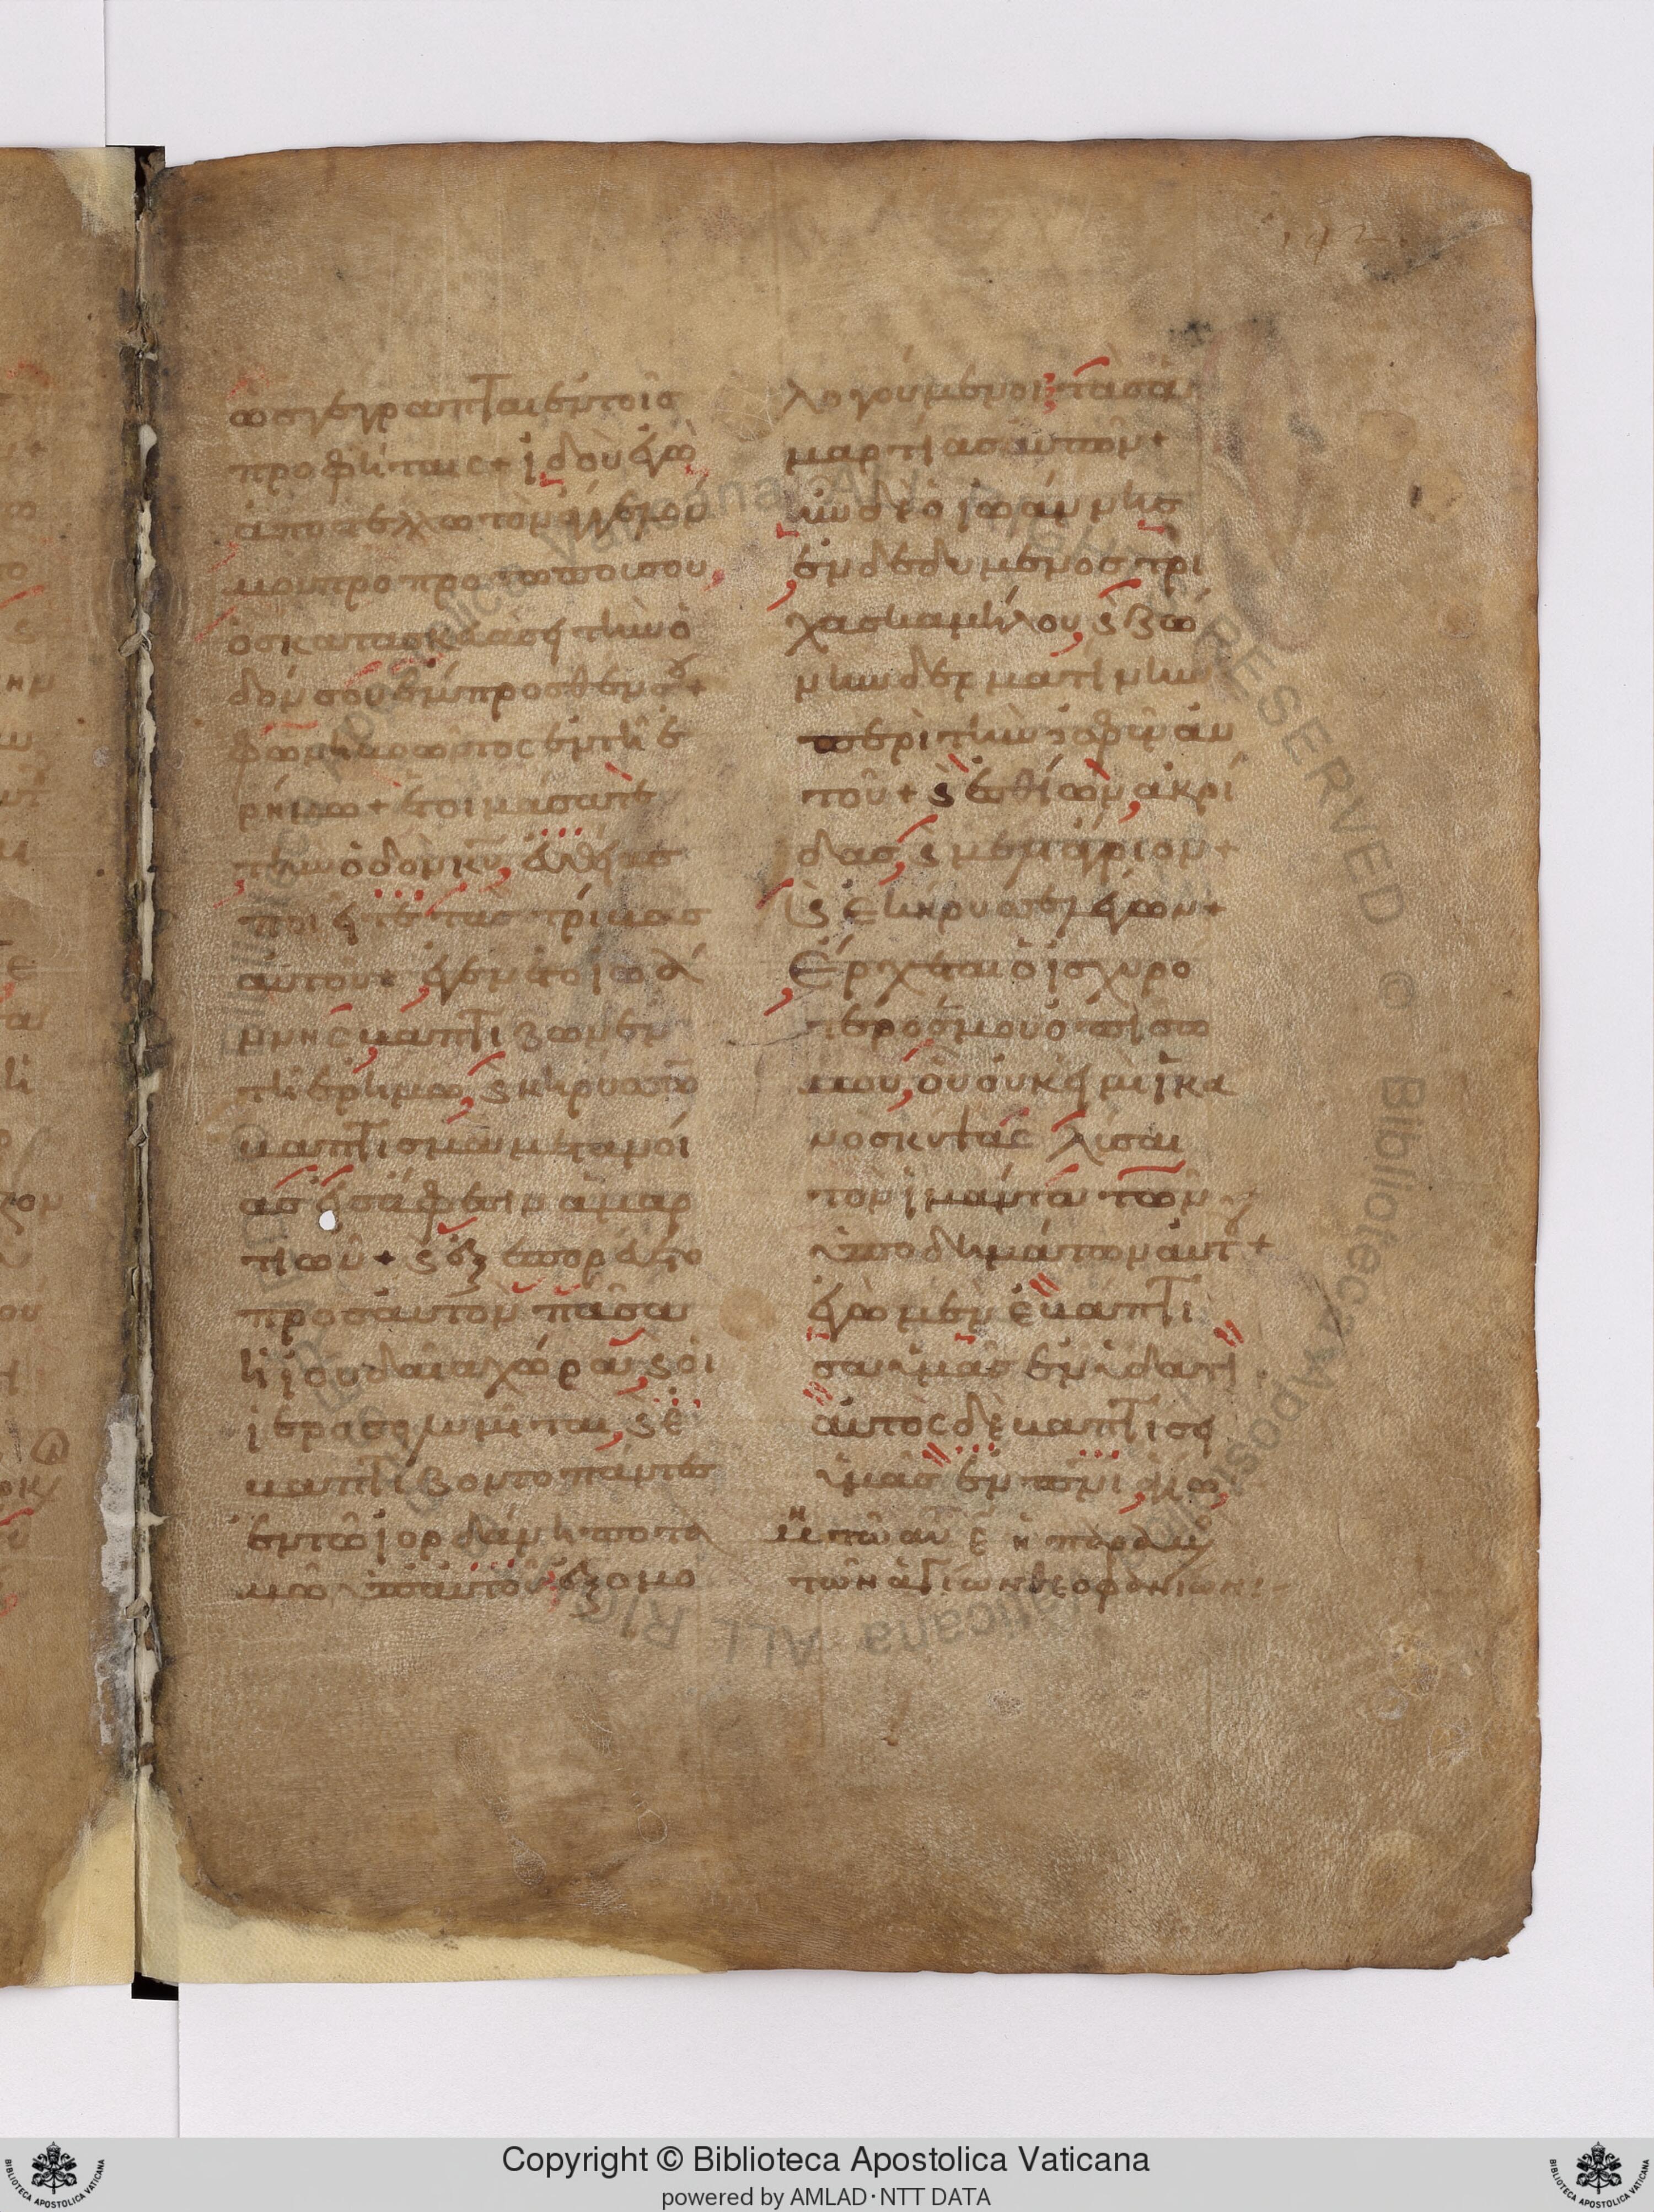 ωσγεγραπται εν τοις
προφήταις + ἰδοὺ ἐγὼ
ἀποστελλω τὸν ἄγγελόν
μου προ προσωπου σου,
ὁς κατασκευάσει τὴν ὁ
δόν σου ἔμπροσθέν σου +
φωνὴ βοῶντος ἐν τῇ ἐ
ρήμω + ἑτοιμάσατε
τὴν ὁδὸν κυ, ἐυθείας
ποιεῖτε τὰς τρίβους
ἀυτοῦ + ἐγένετο ἰωά
ννης βαπτίζων ἐν
τῇ ἐρήμω, ϛ κηρύσσων
βάπτισμα μετανοί
ας εἰς ἄφεσιν ἁμαρ
τιῶν + ϛ ἐξεπορέυετο
προς ἀυτὸν πᾶσα
ἡ ἰουδαία χώρα, ϛ οἱ
ἱεροσολυμῖται, ϛ ἐ
βαπτίζοντο πάντες
ἐν τῶ ἰορδάνη ποτα
μῶ ὑπ ἀυτοῦ ἐξομο
λογούμενοι τὰς ἁ
μαρτίας ἀυτῶν +
ἦν δὲ ὁ ἰωάννης
ἐνδεδυμένος τρί
χας καμήλου, ϛ ζώ
νην δερματίνην
περὶ τὴν ὀσφῦν ἀυ
τοῦ + ϛ ἐσθίων ἀκρί
δας, ϛ μέλι ἄγριον +
ϛ ἐκήρυσσε λέγων +
Ἔρχεται ὁ ἰσχυρό
τερός μου ὀπίσω
μου, οὗ ὀυκ εἰμὶ ἱκα
νὸς κύψας λῦσαι
τὸν ἱμάντα τῶν
ὑποδημάτων ἀυτ +
ἐγὼ μὲν ἐβάπτι
σα ὑμᾶς ἐν ὕδατι
ἀυτὸς δὲ βαπτίσει
ὑμᾶς ἐν πνι ἁγίω,
τῶν ἁγίων θεοφανίων